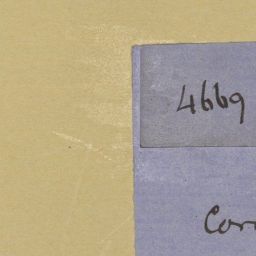 4669
Cor